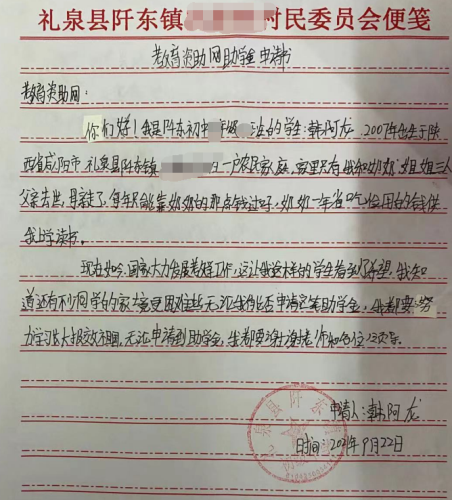 礼泉县阡东镇 村民委员会便笺
教育资助网助学金申请书
教育资助网：
你们好！我是阡东初中 年级 法的学生：韩阿龙，2007年出生于陕
西省咸阳市礼泉县阡东镇 的一户农民家庭，家里只有我和奶奶姐姐三人
父亲去世，母亲走了，每年只能靠奶奶的那点钱过日子，奶奶一年省吃俭用的钱供
我上学读书。
现在如今，国家大力发展教育工作，这让我这样的学生看到了希望，我知
道还有不少同学的家境更困难些无论能否申请到助学金，我都要努
力学习长大报效祖国，无论申请到助学金，我都要谢谢老师和各位领导。
申请人：韩阿龙
日时间：2021年9月22日
礼泉县阡东镇